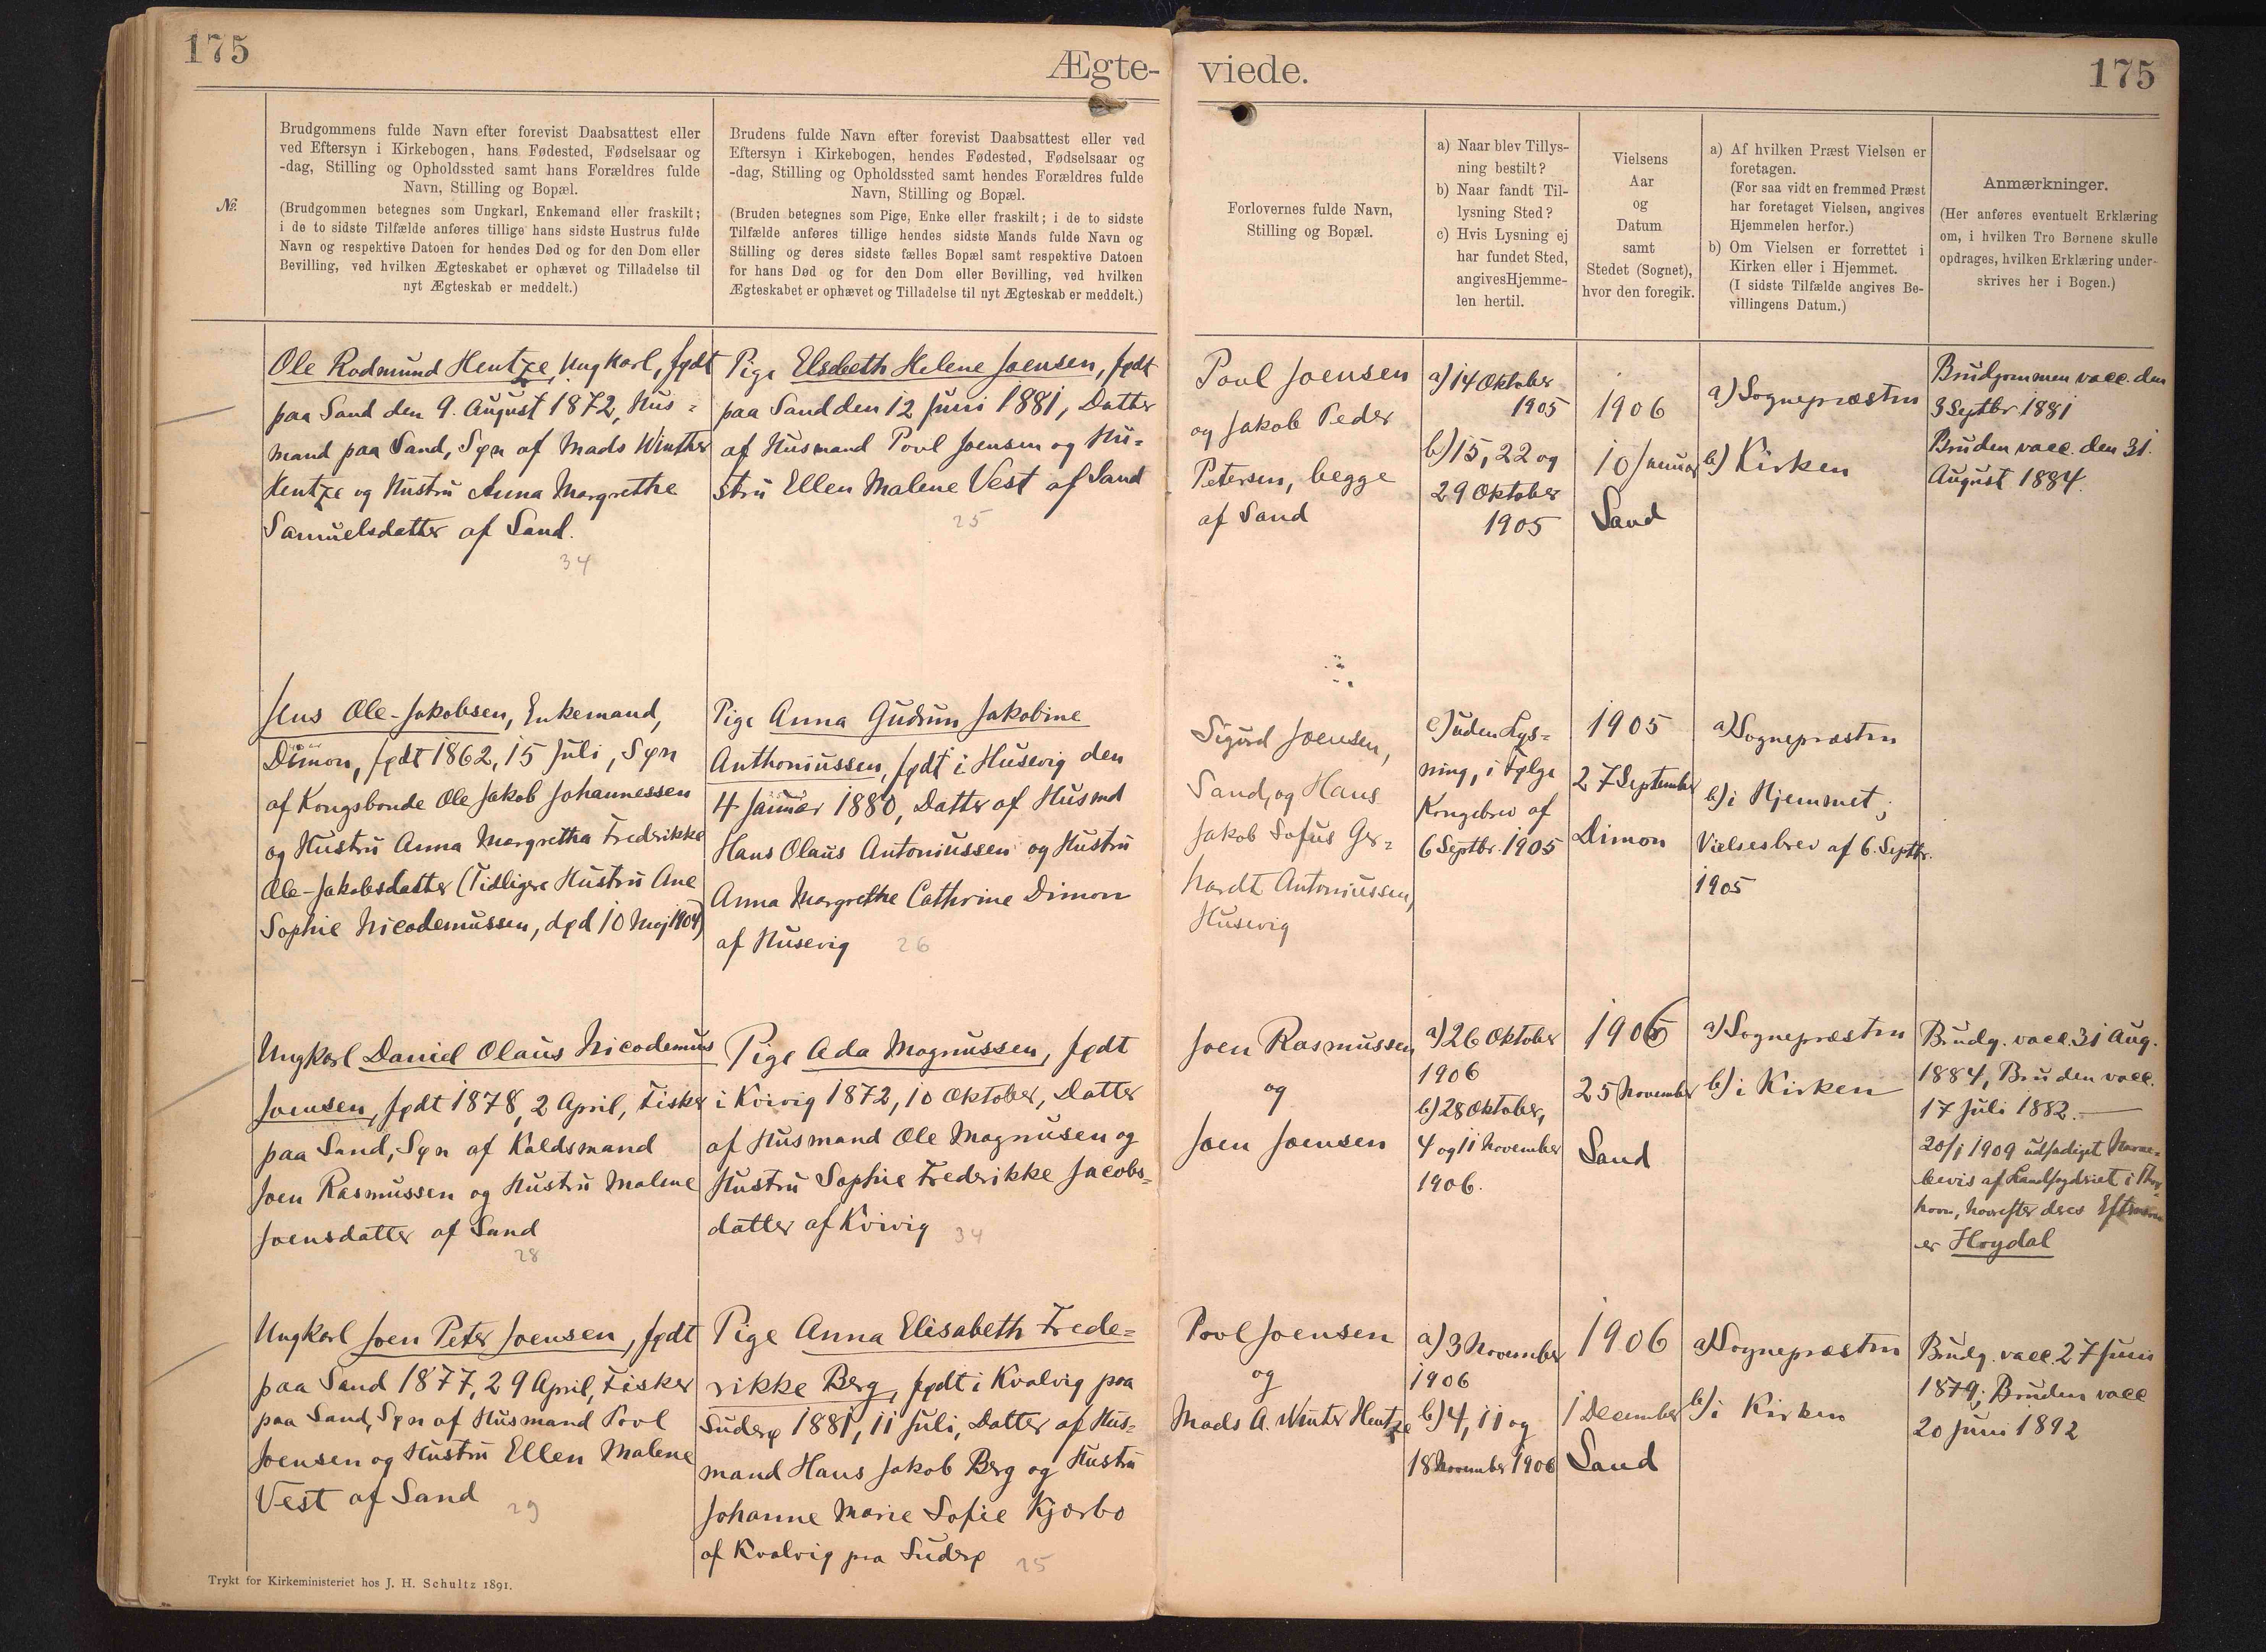 175
Ægte-
viede.
175
№.
Brudgommens fulde Navn efter forevist Daabsattest eller
ved Eftersyn i Kirkebogen, hans Fødested, Fødselsaar og
-dag, Stilling og Opholdssted samt hans Forældres fulde
Navn, Stilling og Bopæl.
(Brudgommen betegnes som Ungkarl, Enkemand eller fraskilt;
i de to sidste Tilfælde anføres tillige hans sidste Hustrus fulde
Navn og respektive Datoen for hendes Død og for den Dom eller
Bevilling, ved hvilken Ægteskabet er ophævet og Tilladelse til
nyt Ægteskab er meddelt.)
Brudens fulde Navn efter forevist Daabsattest eller ved
Eftersyn i Kirkebogen, hendes Fødested, Fødselsaar og
-dag, Stilling og Opholdssted samt hendes Forældres fulde
Navn, Stilling og Bopæl.
(Bruden betegnes som Pige, Enke eller fraskilt; i de to sidste
Tilfælde anføres tillige hendes sidste Mands fulde Navn og
Stilling og deres sidste fælles Bopæl samt respektive Datoen
for hans Død og for den Dom eller Bevilling, ved hvilken
Ægteskabet er ophævet og Tilladelse til nyt Ægteskab er meddelt.)
Forlovernes fulde Navn,
Stilling og Bopæl.
a) Naar blev Tillys-
ning bestilt?
b) Naar fandt Til-
lysning Sted?
c) Hvis Lysning ej
har fundet Sted,
angivesHjemme-
len hertil.
Vielsens
Aar
og
Datum
samt
Stedet (Sognet),
hvor den foregik.
a) Af hvilken Præst Vielsen er
foretagen.
(For saa vidt en fremmed Præst
har foretaget Vielsen, angives
Hjemmelen herfor.)
b) Om Vielsen er forrettet i
Kirken eller i Hjemmet.
(I sidste Tilfælde angives Be-
villingens Datum.)
Anmærkninger.
(Her anføres eventuelt Erklæring
om, i hvilken Tro Børnene skulle
opdrages, hvilken Erklæring under-
skrives her i Bogen.)
Ole Rodmund Hentze, Ungkarl, født
paa Sand den 9. August 1872, Hus=
mand paa Sand, Søn af Mads Winther
Hentze og Hustru Anna Margrethe
Samuelsdatter af Sand.
34
Pige Elsbeth Helene Joensen, født
paa Sand den 12 Juni 1881, Datter
af Husmand Povl Joensen og Hu=
stru Ellen Malene Vest af Sand
25
Povl Joensen
og Jakob Peder
Petersen, begge
af Sand
a) 14 Oktober
1905
b) 15, 22 og
29 Oktober
1905
1906
10 Januar
Sand
a) Sognepræsten
b) Kirken
Brudgommen vacc. den
3 Septbr. 1881
Bruden vacc. den 31.
August 1884.
Jens Ole-Jakobsen, Enkemand,
Dimon, født 1862, 15 Juli, Søn
af Kongsbonde Ole Jakob Johannessen
og Hustru Anna Margretha Frederikke
Ole-Jakobsdatter (Tidligere Hustru Ane
Sophie Nicodemussen, død 10 Maj 1904)
Pige Anna Gudrun Jakobine
Anthoniussen, født i Husevig den
4 Januar 1880, Datter af Husmd
Hans Olaus Antoniussen og Hustru
Anna Margrethe Cathrine Dimon
af Husevig
26
Sigurd Joensen,
Sand, og Hans
Jakob Sofus Ger=
hardt Antoniussen,
Husevig
c) uden Lys=
ning, i Følge
Kongebrev af
6 Septbr. 1905
1905
27 September
Dimon
a) Sognepræsten
b) i Hjemmet;
Vielsesbrev af 6. Septbr.
1905
Ungkarl Daniel Olaus Nicodemus
Joensen, født 1878, 2 April, Fisker
paa Sand, Søn af Kaldsmand
Joen Rasmussen og Hustru Malene
Joensdatter af Sand
28
Pige Ada Magnussen, født
i Kvivig 1872, 10 Oktober, Datter
af Husmand Ole Magnusen og
Hustru Sophie Frederikke Jacobs=
datter af Kvivig
34
Joen Rasmussen
og
Joen Joensen
a) 26 Oktober
1906
b) 28 Oktober,
4 og 11 November
1906.
1906
25 November
Sand
a) Sognepræsten
b) i Kirken
Brudg. vacc. 31 Aug.
1884, Bruden vacc.
17 Juli 1882.
20/1 1909 udfærdiget Navne=
bevis af Landfogderiet i Thors=
havn, hvorefter deres Efternavn
er Hoydal
Ungkarl Joen Peter Joensen, født
paa Sand 1877, 29 April, Fisker
paa Sand, Søn af Husmand Povl
Joensen og Hustru Ellen Malene
Vest af Sand
29
Pige Anna Elisabeth Frede=
rikke Berg, født i Kvalvig paa
Suderø 1881, 11 Juli, Datter af Hus=
mand Hans Jakob Berg og Hustru
Johanne Marie Sofie Kjærbo
af Kvalvig paa Suderø
25
Povl Joensen
og
Mads A. Winter Hentze
a) 3 November
1906
b) 4, 11 og
18 November 1906
1906
1 December
Sand
a) Sognepræsten
b) i Kirken
Brudg. vacc. 27 Juni
1879; Bruden vacc
20 Juni 1892
Trykt for Kirkeministeriet hos J. H. Schultz 1891.